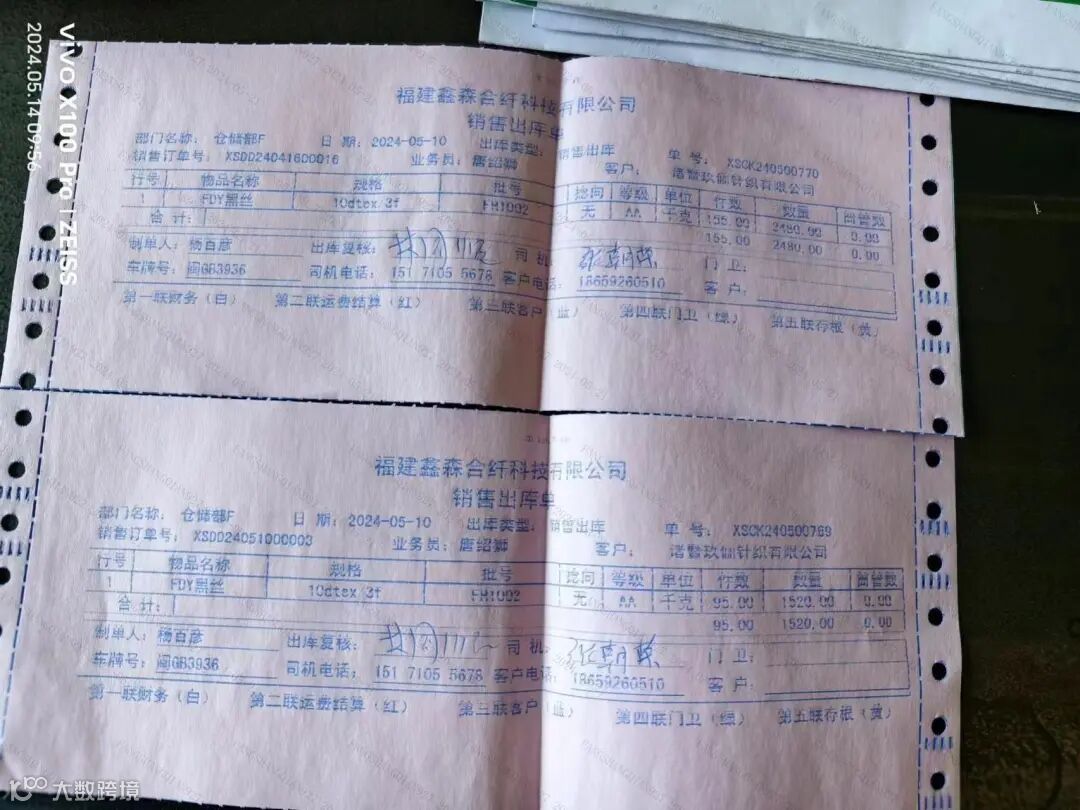 vivo X100 Pro | ZEISS
2024.05.14 09:56
福建鑫森合纤科技有限公司
销售出库单
部门名称: 仓储部F 日 期: 2024-05-10 出库类型: 销售出库 单 号: XSCK240500770
销售订单号: XSDD240416D0016 业务员: 唐绍狮 客户: 诸暨玖伽针织有限公司
行号 物品名称 规格 批号 捻向 等级 单位 件数 数量 筒管数
1 FDY黑丝 10dtex/3f FH1002 无 AA 千克 155.00 2480.00 0.00
合 计: 155.00 2480.00 0.00
制单人: 杨百彦 出库复核: 司 机: 张朝荣 门 卫:
车牌号: 闽GB3936 司机电话: 151 7105 5678 客户电话: 18659260510 客 户:
第一联财务（白） 第二联运费结算（红） 第三联客户（蓝） 第四联门卫（绿） 第五联存根（黄）
福建鑫森合纤科技有限公司
销售出库单
部门名称: 仓储部F 日 期: 2024-05-10 出库类型: 销售出库 单 号: XSCK240500769
销售订单号: XSDD24051000003 业务员: 唐绍狮 客户: 诸暨玖伽针织有限公司
行号 物品名称 规格 批号 捻向 等级 单位 件数 数量 筒管数
1 FDY黑丝 10dtex/3f FH1002 无 AA 千克 95.00 1520.00 0.00
合 计: 95.00 1520.00 0.00
制单人: 杨百彦 出库复核: 司 机: 张朝荣 门 卫:
车牌号: 闽GB3936 司机电话: 151 7105 5678 客户电话: 18659260510 客 户:
第一联财务（白） 第二联运费结算（红） 第三联客户（蓝） 第四联门卫（绿） 第五联存根（黄）
大数跨境